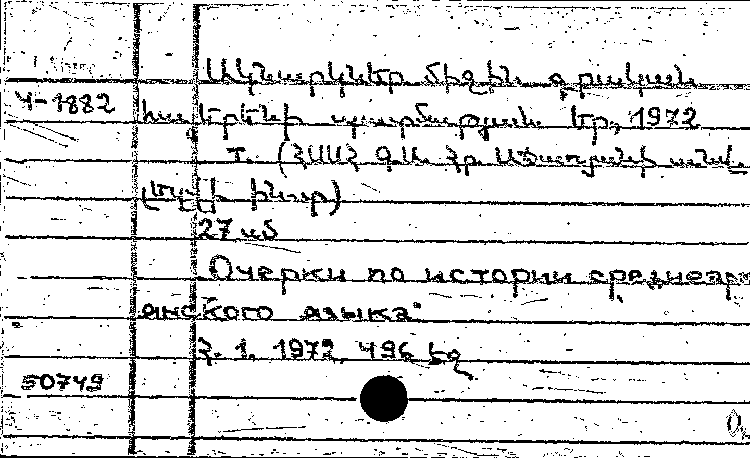 Ակնարկներ միջին գրական
Ч-1882 հայերենի պատմության Եր., 1972
т. (ՀՍՍՀ ԳԱ Հր. Աճառյանի անվ.
լեզվի ինստ)
27 սմ
Очерки по истории среднеарм
янского языка"
Հ. 1. 1972. 496 էջ
50749